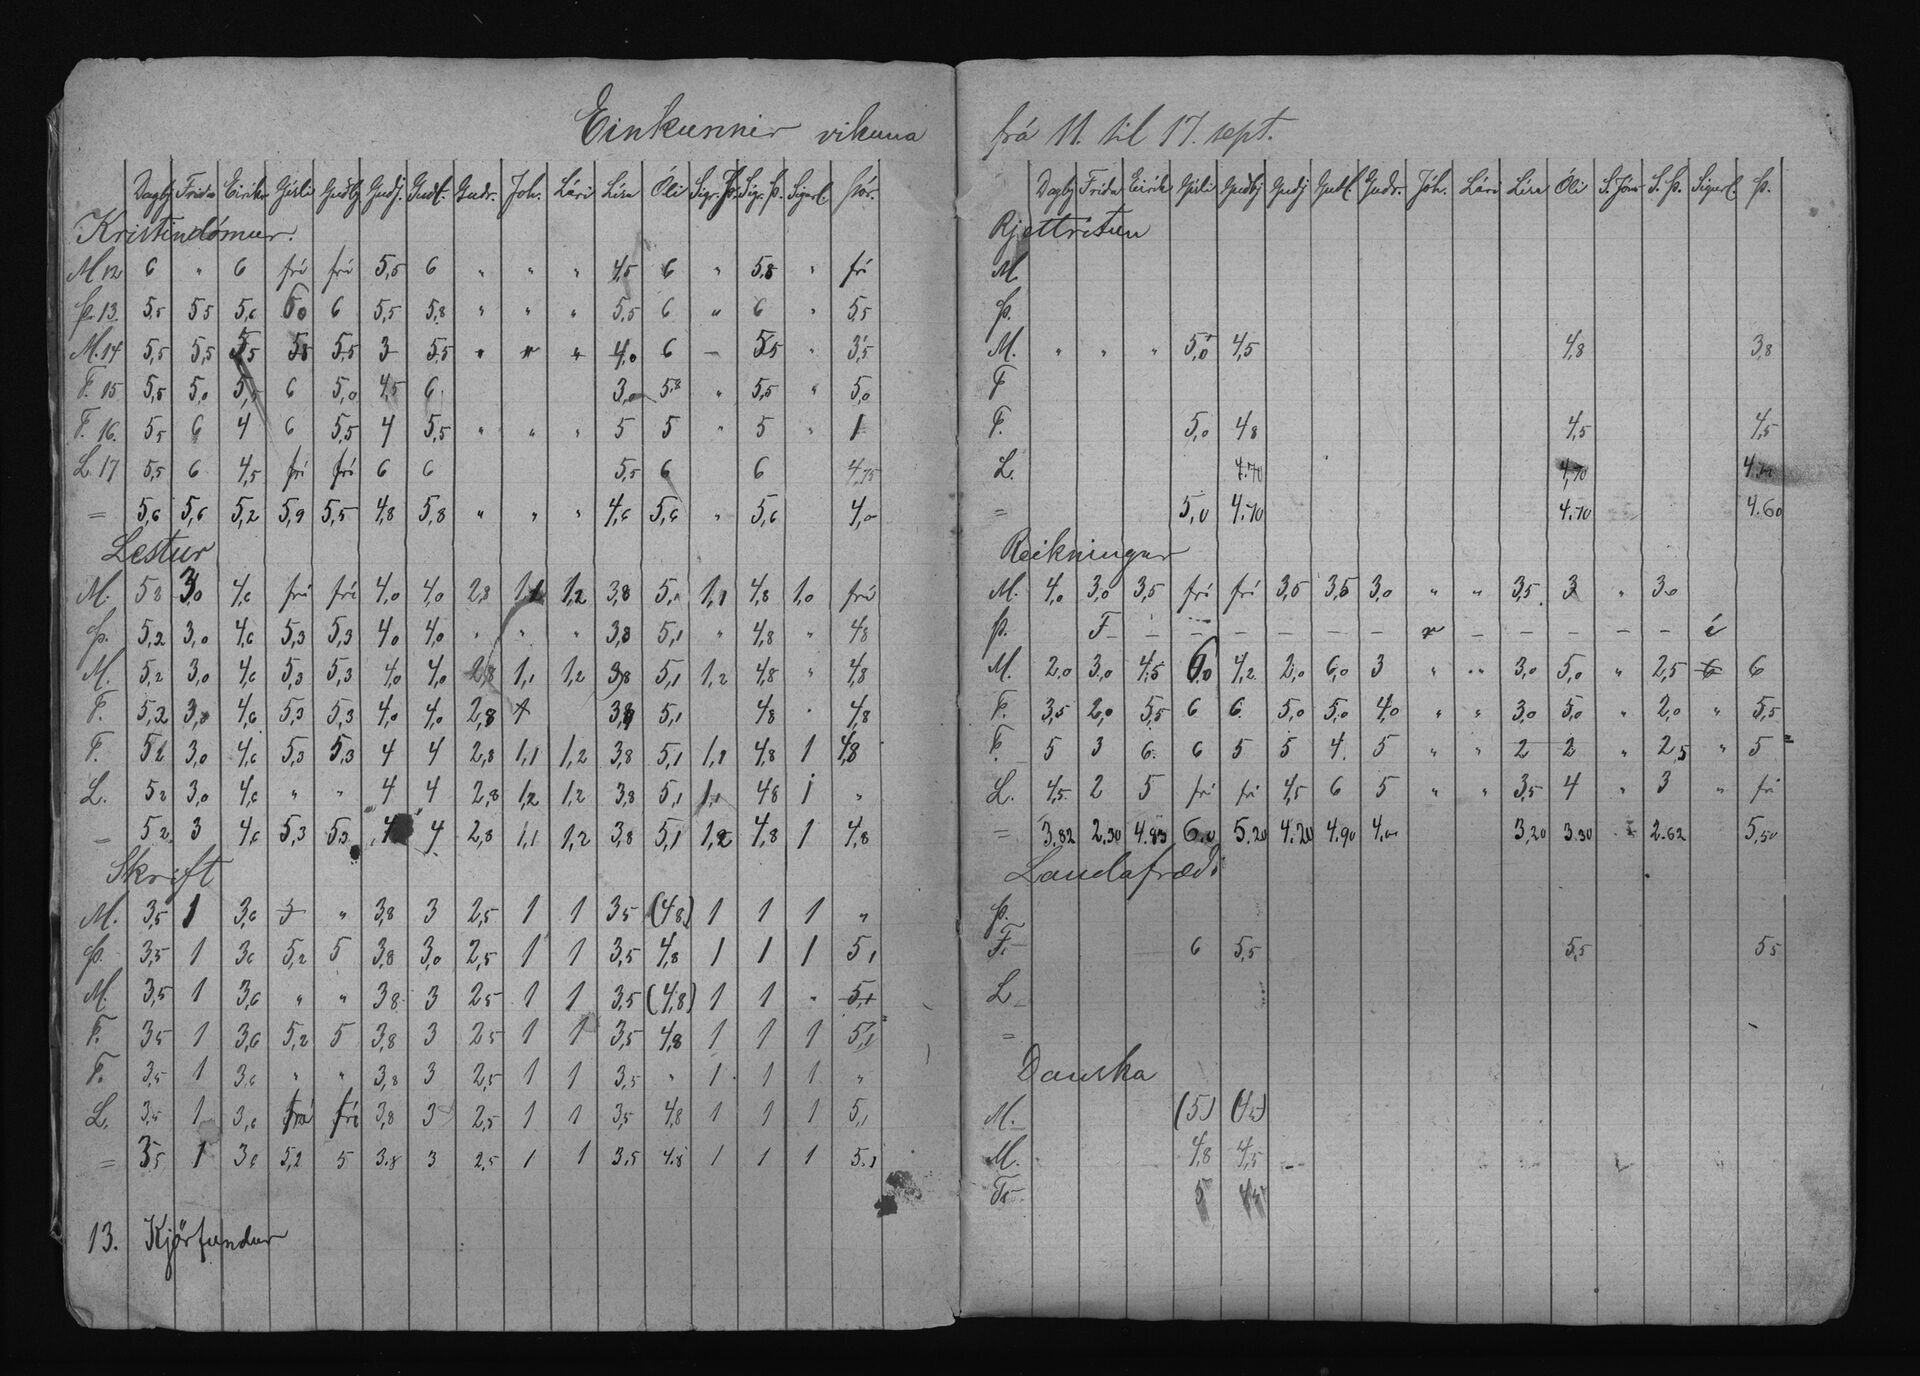 Einkunnir vikuna
Dagbj Frida Eirikr Gisli Gudbj Gudj. Gudl. Gudr. Joh. Lári Lira Óli Sigr. J. Sigr. Þ. Sigurl. Þór.
Kristindómur.
M 12 6 " 6 frí frí 5,5 6 " " " 4,5 6 " 5,8 " frí
Þ. 13. 5,5 5,5 5,6 6,0 6 5,5 5,8 " " " 5,5 6 " 6 " 5,5
M. 14 5,5 5,5 5,5 5,8 5,5 3 5,5 " " " 4,0 6 – 5,5 " 3,5
F. 15 5,5 5,0 5,5 6 5,0 4,5 6 3,0 5,8 " 5,5 " 5,0
F. 16. 5,5 6 4 6 5,5 4 5,5 " " " 5 5 " 5 " 1
L. 17 5,5 6 4,5 frí frí 6 6 5,5 6 6 4,75
= 5,6 5,6 5,2 5,9 5,5 4,8 5,8 " " " 4,6 5,6 " 5,6 4,0
Lestur
M. 5,2 3,0 4,6 frí frí 4,0 4,0 2,8 1,1 1,2 3,8 5,1 1,1 4,8 1,0 frí
Þ. 5,2 3,0 4,6 5,3 5,3 4,0 4,0 " " " 3,8 5,1 " 4,8 " 4,8
M. 5,2 3,0 4,6 5,3 5,3 4,0 4,0 2,8 1,1 1,2 3,8 5,1 1,2 4,8 " 4,8
F. 5,2 3,0 4,6 5,3 5,3 4,0 4,0 2,8 3,8 5,1 4,8 " 4,8
F. 5,2 3,0 4,6 5,3 5,3 4 4 2,8 1,1 1,2 3,8 5,1 1,1 4,8 1 4,8
L. 5,2 3,0 4,6 " " 4 4 2,8 1,2 1,2 3,8 5,1 1,1 4,8 1 "
= 5,2 3 4,6 5,3 5,3 4 4 2,8 1,1 1,2 3,8 5,1 1,2 4,8 1 4,8
Skrift
M. 3,5 1 3,6 " 3,8 3 2,5 1 1 3,5 (4,8) 1 1 1 "
Þ. 3,5 1 3,6 5,2 5 3,8 3,0 2,5 1 1 3,5 4,8 1 1 1 5,1
M. 3,5 1 3,6 " " 3,8 3 2,5 1 1 3,5 (4,8) 1 1 " 5,1
F. 3,5 1 3,6 5,2 5 3,8 3 2,5 1 1 3,5 4,8 1 1 1 5,1
F. 3,5 1 3,6 " " 3,8 3 2,5 1 1 3,5 " 1 1 1 "
L. 3,5 1 3,6 frí frí 3,8 3 2,5 1 1 3,5 4,8 1 1 1 5,1
= 3,5 1 3,6 5,2 5 3,8 3 2,5 1 1 3,5 4,8 1 1 1 5,1
13. Kjörfundur
frá 11. til 17. sept.
Dagbj Frida Eirik Gisli Gudbj Gudj Gudl. Gudr. Jóh. Lári Lira Óli S. Jóns S. Þ. Sigurl. Þ.
Rjettritun
M.
Þ.
M. " " " 5,0 4,5 4,8 3,8
F
F. 5,0 4,8 4,5 4,5
L. 4,70 4,70
= 5,0 4,70 4,70 4.60
Reikningur
M. 4,0 3,0 3,5 frí frí 3,5 3,5 3,0 " " 3,5 3 " 3,0
Þ. F – – – – – – – – – – – –
M. 2,0 3,0 4,5 6,0 4,2 2,0 6,0 3 " " 3,0 5,0 " 2,5 6 6
F. 3,5 2,0 5,5 6 6 5,0 5,0 4,0 " " 3,0 5,0 " 2,0 " 5,5
F. 5 3 6 6 5 5 4 5 " " 2 2 " 2,5 " 5
L. 4,5 2 5 frí frí 4,5 6 5 " " 3,5 4 " 3 " frí
= 3,82 2,30 4,83 6,0 5,20 4,20 4,90 4,00 3,20 3,30 2,62 5,50
Landafræði
Þ.
F. 6 5,5 5,5 5,5
L
=
Danska
M. (5) (4,5)
M. 4,8 4,5
F. 5 4,5